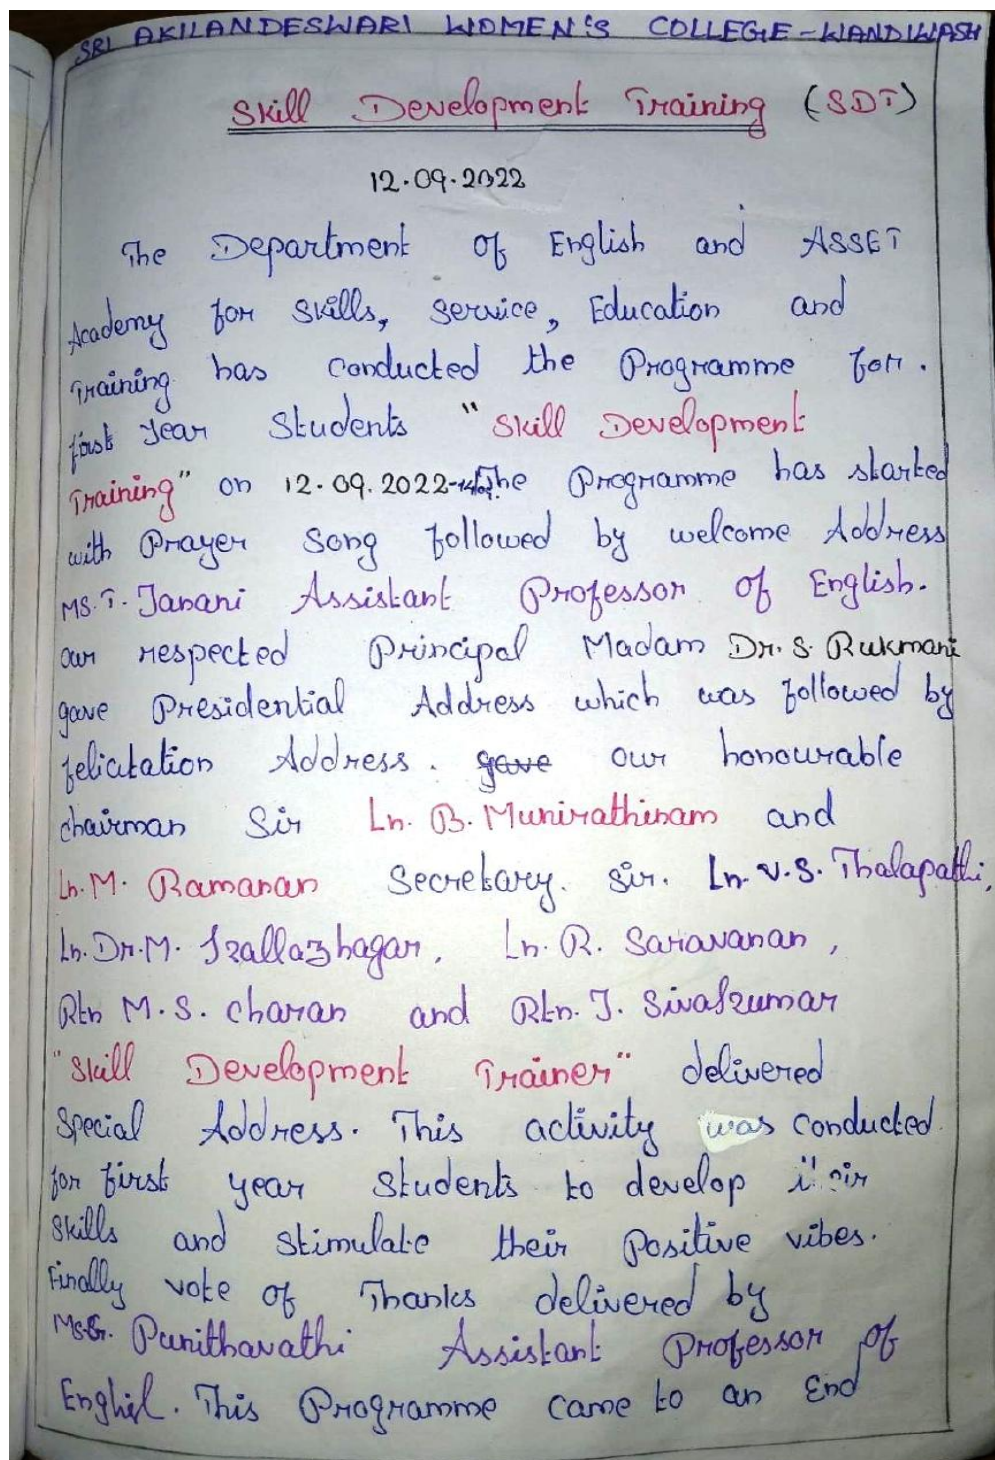 SRI AKILANDESWARI WOMEN'S COLLEGE - WANDIWASH
Skill Development Training (SDT)
12.09.2022
The Department of English and ASSET
Academy for Skills, Service, Education and
Training has conducted the Programme for.
first year Students "Skill Development
Training" on 12.09.2022 The Programme has started
with Prayer Song followed by welcome Address
MS. T. Janani Assistant Professor of English.
our respected Principal Madam Dr. S. Rukmani
gave Presidential Address which was followed by
felicitation Address. gave our honourable
chairman Sir Ln. B. Munirathinam and
Ln. M. Ramanan Secretary. Sir. Ln. V.S. Thalapathi,
Ln. Dr. M. Kallazhagar, Ln. R. Saravanan,
Rtn M.S. Charan and Rtn. J. Sivakumar
"Skill Development Trainer" delivered
Special Address. This activity was conducted
for first year Students to develop their
Skills and Stimulate their Positive vibes.
Finally vote of Thanks delivered by
Ms.G. Punithavathi Assistant Professor of
Enghil. This Programme came to an End